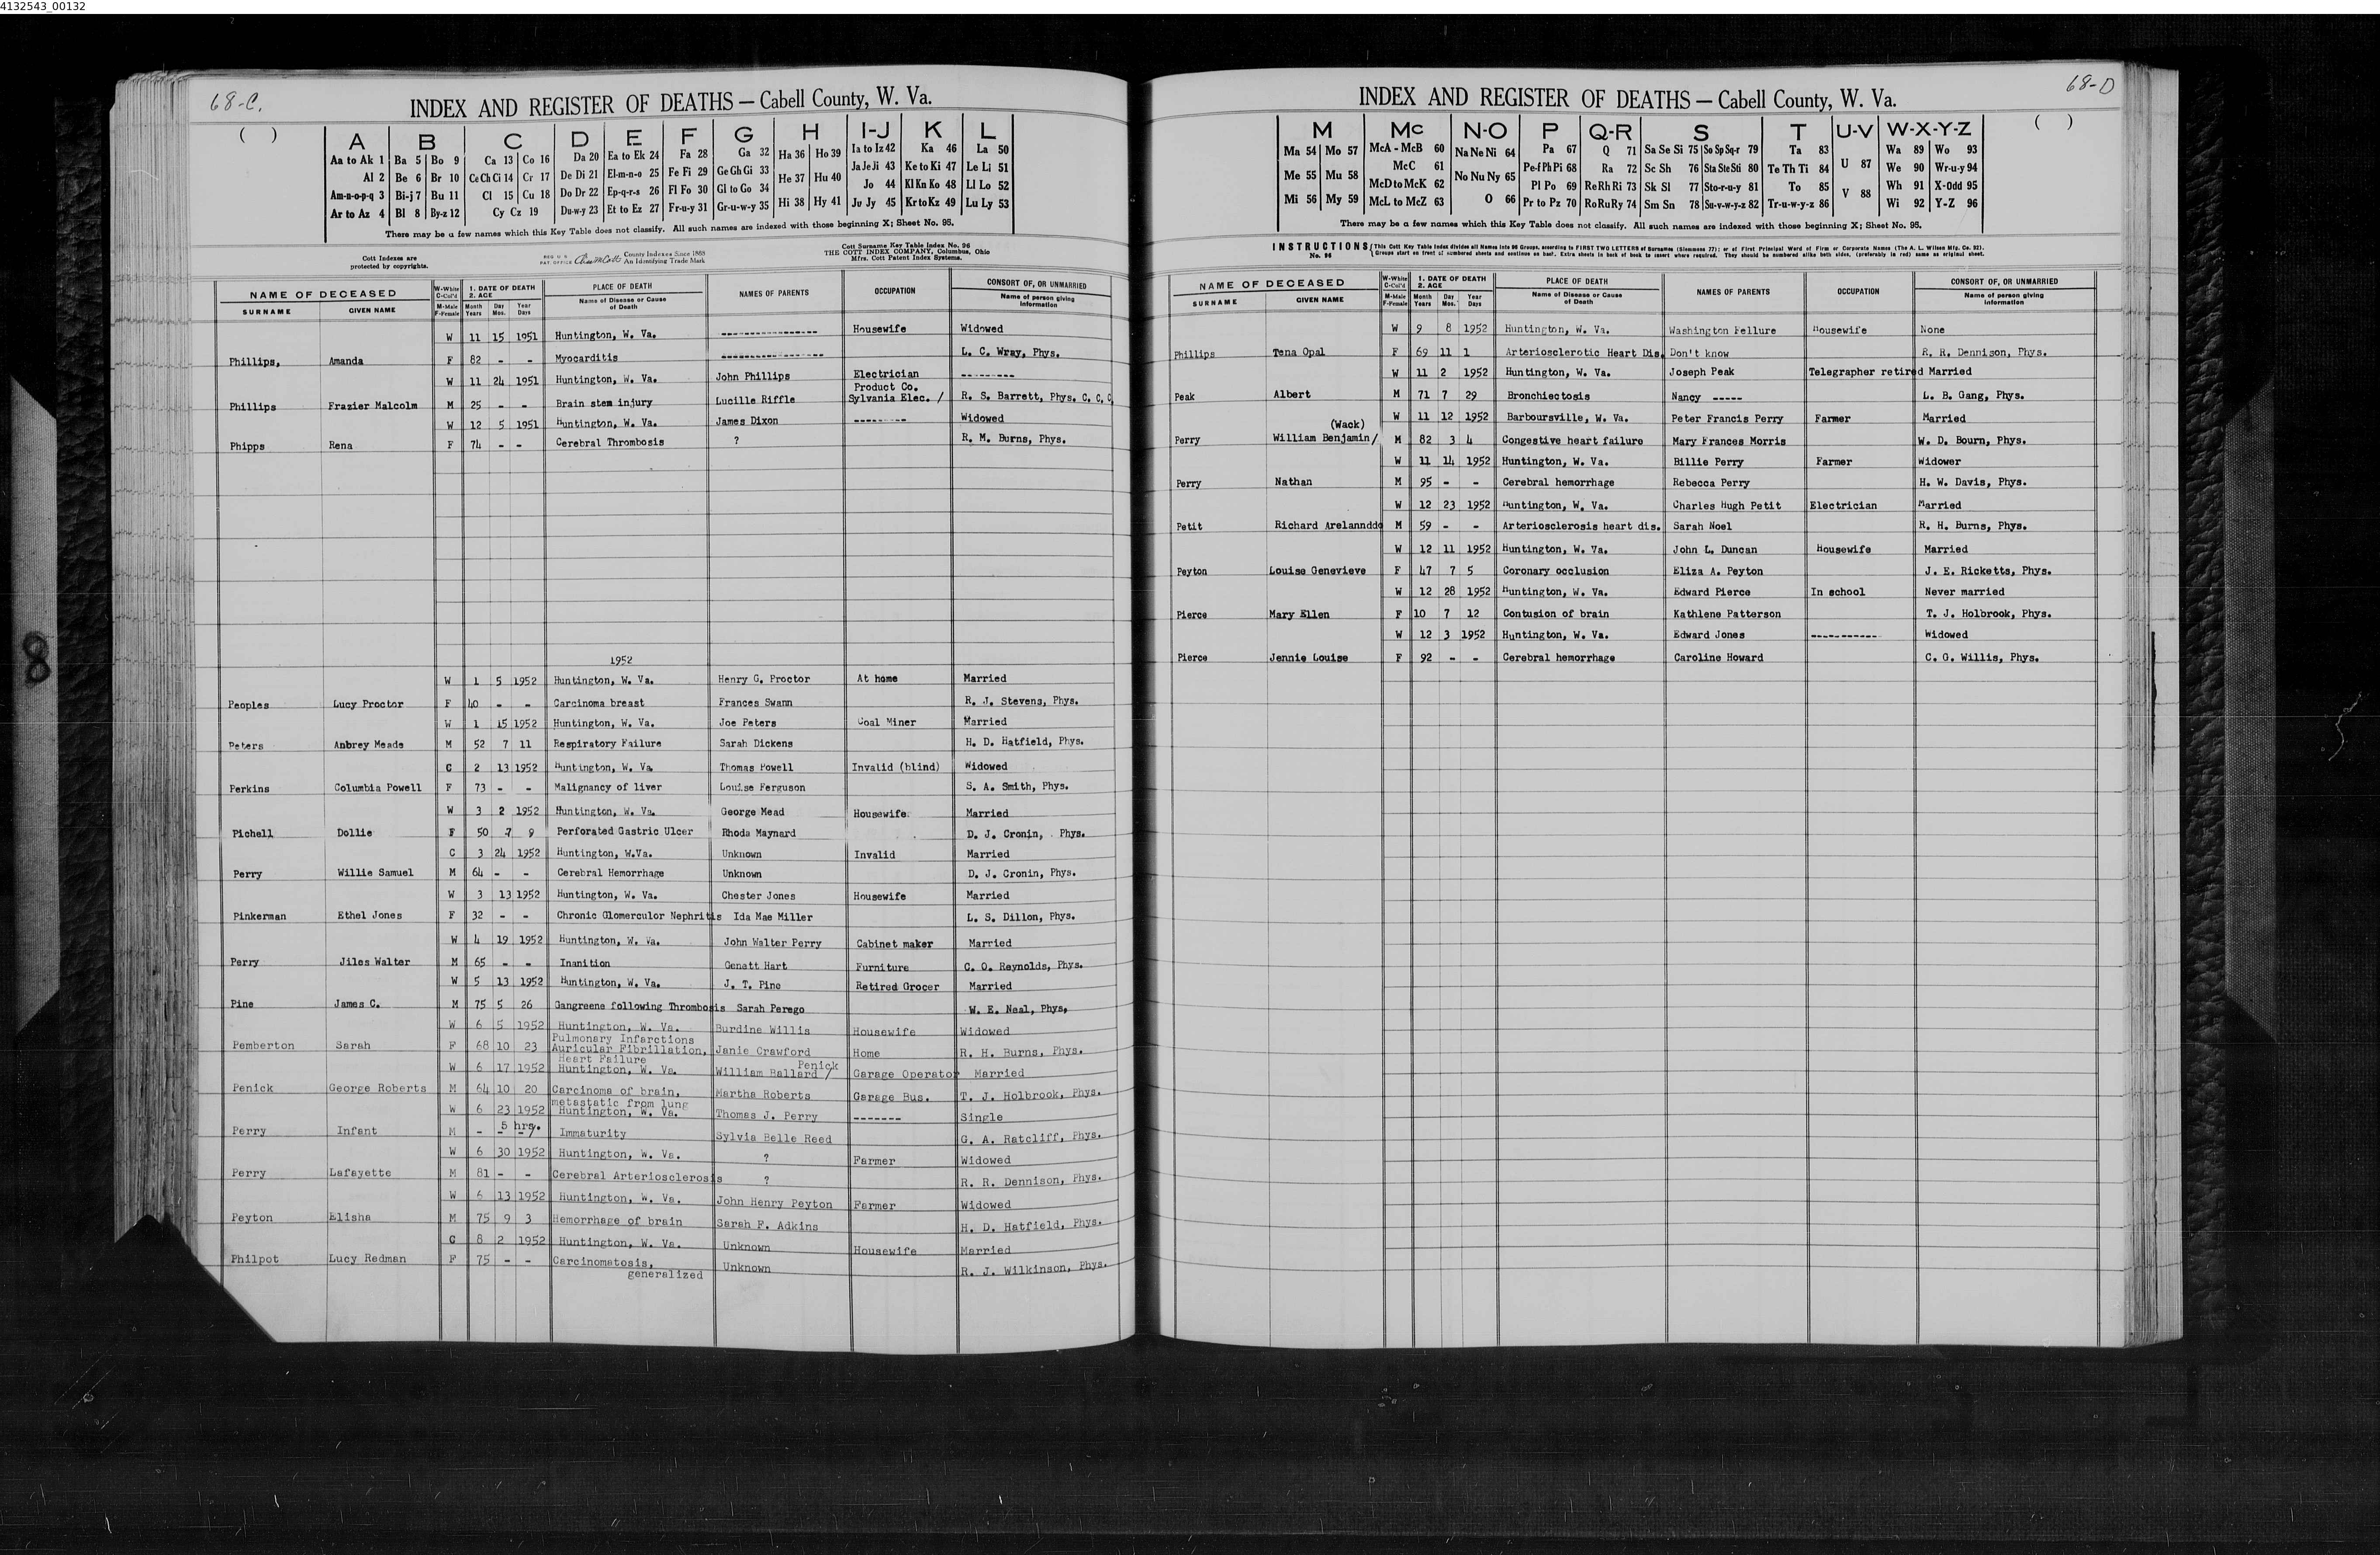 4132543_00132
68-C.
INDEX AND REGISTER OF DEATHS — Cabell County, W. Va.
( )
A B C D E F G H I-J K L
Aa to Ak 1 Ba 5 Bo 9 Ca 13 Co 16 Da 20 Ea to Ek 24 Fa 28 Ga 32 Ha 36 Ho 39 Ia to Iz 42 Ka 46 La 50
Al 2 Be 6 Br 10 Ce Ch Ci 14 Cr 17 De Di 21 El-m-n-o 25 Fe Fi 29 Ge Gh Gi 33 He 37 Hu 40 Ja Je Ji 43 Ke to Ki 47 Le Li 51
Am-n-o-p-q 3 Bi-j 7 Bu 11 Cl 15 Cu 18 Do Dr 22 Ep-q-r-s 26 Fl Fo 30 Gl to Go 34 Hi 38 Hy 41 Jo 44 Kl Kn Ko 48 Ll Lo 52
Ar to Az 4 Bl 8 By-z 12 Cy Cz 19 Du-w-y 23 Et to Ez 27 Fr-u-y 31 Gr-u-w-y 35 Ju Jy 45 Kr to Kz 49 Lu Ly 53
There may be a few names which this Key Table does not classify. All such names are indexed with those beginning X; Sheet No. 95.
Cott Indexes are protected by copyrights.
REG U S PAT OFFICE County Indexes Since 1888 An Identifying Trade Mark
Cott Surname Key Table Index No. 96
THE COTT INDEX COMPANY, Columbus, Ohio
Mfrs. Cott Patent Index Systems.
NAME OF DECEASED W-White C-Col'd 1. DATE OF DEATH 2. AGE PLACE OF DEATH NAMES OF PARENTS OCCUPATION CONSORT OF, OR UNMARRIED
SURNAME GIVEN NAME M-Male F-Female Month Years Day Mos. Year Days Name of Disease or Cause of Death Name of person giving information
W 11 15 1951 Huntington, W. Va. ----------------- Housewife Widowed
Phillips, Amanda F 82 - - Myocarditis ------------------ L. C. Wray, Phys.
W 11 24 1951 Huntington, W. Va. John Phillips Electrician ---------
Product Co.
Phillips Frazier Malcolm M 25 - - Brain stem injury Lucille Riffle Sylvania Elec. / R. S. Barrett, Phys. C. C. C.
W 12 5 1951 Huntington, W. Va. James Dixon --------- Widowed
Phipps Rena F 74 - - Cerebral Thrombosis ? R. M. Burns, Phys.
1952
W 1 5 1952 Huntington, W. Va. Henry G. Proctor At home Married
Peoples Lucy Proctor F 40 - - Carcinoma breast Frances Swann R. J. Stevens, Phys.
W 1 15 1952 Huntington, W. Va. Joe Peters Coal Miner Married
Peters Anbrey Meade M 52 7 11 Respiratory Failure Sarah Dickens H. D. Hatfield, Phys.
C 2 13 1952 Huntington, W. Va Thomas Powell Invalid (blind) Widowed
Perkins Columbia Powell F 73 - - Malignancy of liver Louise Ferguson S. A. Smith, Phys.
W 3 2 1952 Huntington, W. Va. George Mead Housewife Married
Pichell Dollie F 50 7 9 Perforated Gastric Ulcer Rhoda Maynard D. J. Cronin, Phys.
C 3 24 1952 Huntington, W.Va. Unknown Invalid Married
Perry Willie Samuel M 64 - - Cerebral Hemorrhage Unknown D. J. Cronin, Phys.
W 3 13 1952 Huntington, W. Va. Chester Jones Housewife Married
Pinkerman Ethel Jones F 32 - - Chronic Glomerculor Nephritis Ida Mae Miller L. S. Dillon, Phys.
W 4 19 1952 Huntington, W. Va. John Walter Perry Cabinet maker Married
Perry Jiles Walter M 65 - - Inanition Genatt Hart Furniture C. O. Reynolds, Phys.
W 5 13 1952 Huntington, W. Va. J. T. Pine Retired Grocer Married
Pine James C. M 75 5 26 Gangreene following Thrombosis Sarah Perego W. E. Neal, Phys,
W 6 5 1952 Huntington, W. Va. Burdine Willis Housewife Widowed
Pulmonary Infarctions
Pemberton Sarah F 68 10 23 Auricular Fibrillation, Janie Crawford Home R. H. Burns, Phys.
Heart Failure Penick
W 6 17 1952 Huntington, W. Va. William Ballard / Garage Operator Married
Penick George Roberts M 64 10 20 Carcinoma of brain, Martha Roberts Garage Bus. T. J. Holbrook, Phys.
metastatic from lung
W 6 23 1952 Huntington, W. Va. Thomas J. Perry ------- Single
5 hrs.
Perry Infant M - - - Immaturity Sylvia Belle Reed G. A. Ratcliff, Phys.
W 6 30 1952 Huntington, W. Va. ? Farmer Widowed
Perry Lafayette M 81 - - Cerebral Arteriosclerosis ? R. R. Dennison, Phys.
W 6 13 1952 Huntington, W. Va. John Henry Peyton Farmer Widowed
Peyton Elisha M 75 9 3 Hemorrhage of brain Sarah F. Adkins H. D. Hatfield, Phys.
C 8 2 1952 Huntington, W. Va. Unknown Housewife Married
Philpot Lucy Redman F 75 - - Carcinomatosis, Unknown R. J. Wilkinson, Phys.
generalized
8
68-D
INDEX AND REGISTER OF DEATHS — Cabell County, W. Va.
( )
M Mc N-O P Q-R S T U-V W-X-Y-Z
Ma 54 Mo 57 McA - McB 60 Na Ne Ni 64 Pa 67 Q 71 Sa Se Si 75 So Sp Sq-r 79 Ta 83 U 87 Wa 89 Wo 93
Me 55 Mu 58 McC 61 No Nu Ny 65 Pe-f Ph Pi 68 Ra 72 Sc Sh 76 Sta Ste Sti 80 Te Th Ti 84 V 88 We 90 Wr-u-y 94
Mi 56 My 59 McD to McK 62 O 66 Pl Po 69 Re Rh Ri 73 Sk Sl 77 Sto-r-u-y 81 To 85 Wh 91 X-Odd 95
McL to McZ 63 Pr to Pz 70 Ro Ru Ry 74 Sm Sn 78 Su-v-w-y-z 82 Tr-u-w-y-z 86 Wi 92 Y-Z 96
There may be a few names which this Key Table does not classify. All such names are indexed with those beginning X; Sheet No. 95.
INSTRUCTIONS No. 96 This Cott Key Table Index divides all Names into 96 Groups, according to FIRST TWO LETTERS of Surnames (Slemmons 77); or of First Principal Word of Firm or Corporate Names (The A. L. Wilson Mfg. Co. 92).
Groups start on front of numbered sheets and continue on back. Extra sheets in back of book to insert where required. They should be numbered alike both sides, (preferably in red) same as original sheet.
NAME OF DECEASED W-White C-Col'd 1. DATE OF DEATH 2. AGE PLACE OF DEATH NAMES OF PARENTS OCCUPATION CONSORT OF, OR UNMARRIED
SURNAME GIVEN NAME M-Male F-Female Month Years Day Mos. Year Days Name of Disease or Cause of Death Name of person giving information
W 9 8 1952 Huntington, W. Va. Washington Fellure Housewife None
Phillips Tena Opal F 69 11 1 Arteriosclerotic Heart Dis. Don't know R. R. Dennison, Phys.
W 11 2 1952 Huntington, W. Va. Joseph Peak Telegrapher retired Married
Peak Albert M 71 7 29 Bronchiectosis Nancy ----- L. B. Gang, Phys.
W 11 12 1952 Barboursville, W. Va. Peter Francis Perry Farmer Married
(Wack)
Perry William Benjamin/ M 82 3 4 Congestive heart failure Mary Frances Morris W. D. Bourn, Phys.
W 11 14 1952 Huntington, W. Va. Billie Perry Farmer Widower
Perry Nathan M 95 - - Cerebral hemorrhage Rebecca Perry H. W. Davis, Phys.
W 12 23 1952 Huntington, W. Va. Charles Hugh Petit Electrician Married
Petit Richard Arelanndd M 59 - - Arteriosclerosis heart dis. Sarah Noel R. H. Burns, Phys.
W 12 11 1952 Huntington, W. Va. John L. Duncan Housewife Married
Peyton Louise Genevieve F 47 7 5 Coronary occlusion Eliza A. Peyton J. E. Ricketts, Phys.
W 12 28 1952 Huntington, W. Va. Edward Pierce In school Never married
Pierce Mary Ellen F 10 7 12 Contusion of brain Kathlene Patterson T. J. Holbrook, Phys.
W 12 3 1952 Huntington, W. Va. Edward Jones ----------- Widowed
Pierce Jennie Louise F 92 - - Cerebral hemorrhage Caroline Howard C. G. Willis, Phys.